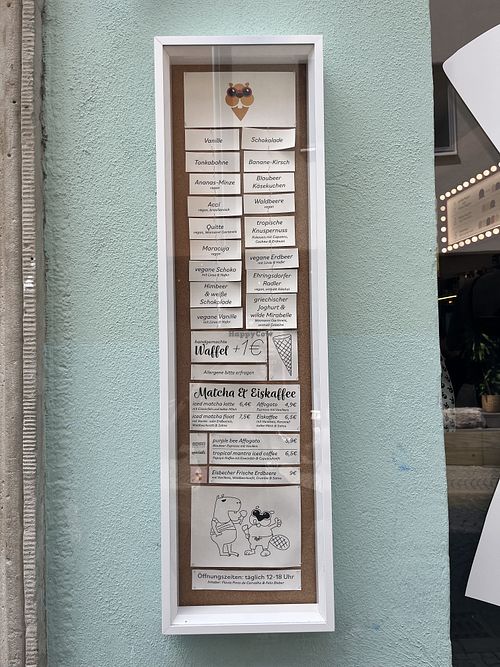 Vanille
Schokolade
Tonkabohne
Banane-Kirsch
Ananas-Minze
vegan
Blaubeer
Käsekuchen
Acai
Waldbeere
vegan
Quitte
tropische
Knuspernuss
Maracuja
vegan
vegane Erdbeer
vegane Schoko
Ehringsdorfer
Radler
Himbeer
& weiße
Schokolade
griechischer
Joghurt &
wilde Mirabelle
vegane Vanille
HappyCow
handgemachte
Waffel +1€
Allergene bitte erfragen
Matcha & Eiskaffee
iced matcha latte 6,4€
Affogato 4,9€
iced matcha float 7,5€
Eiskaffee 6,5€
purple bee Affogato 5,9€
specials
tropical mantra iced coffee 6,5€
Eisbecher Frische Erdbeere 9€
Öffnungszeiten: täglich 12-18 Uhr